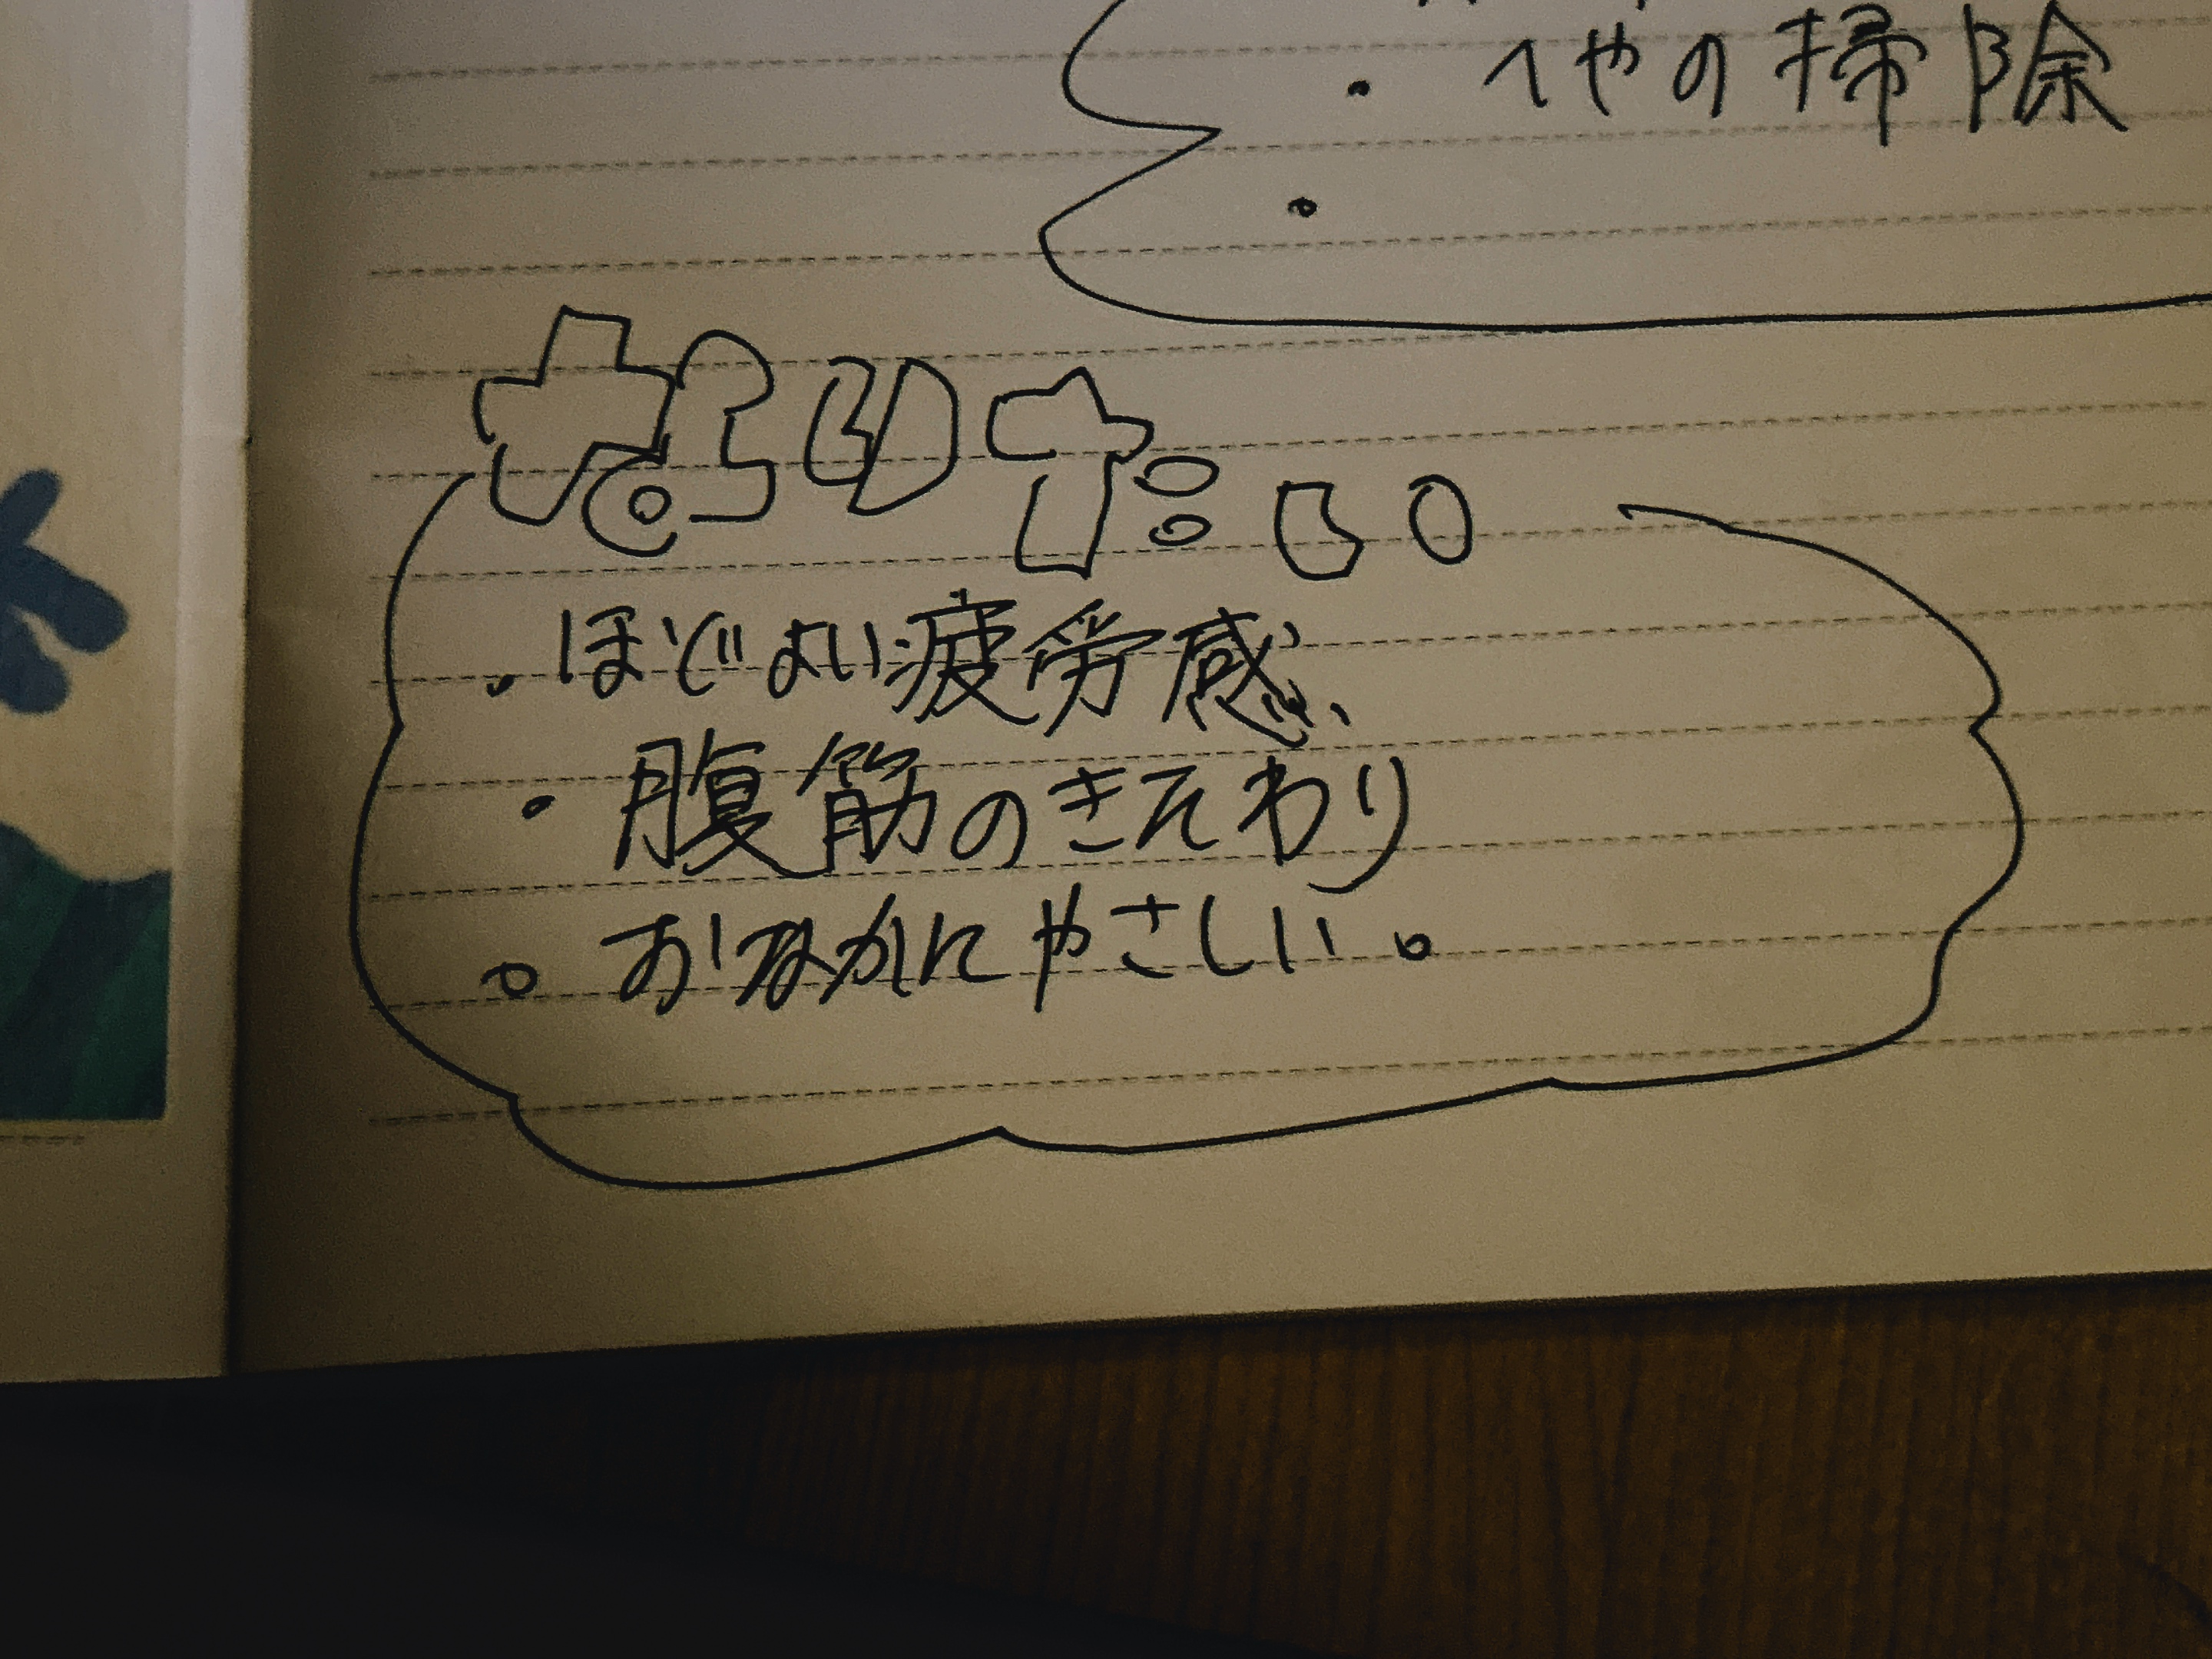 ・へやの掃除
・
なりたい
・ほどよい疲労感、
・腹筋の
。おなかにやさしい。